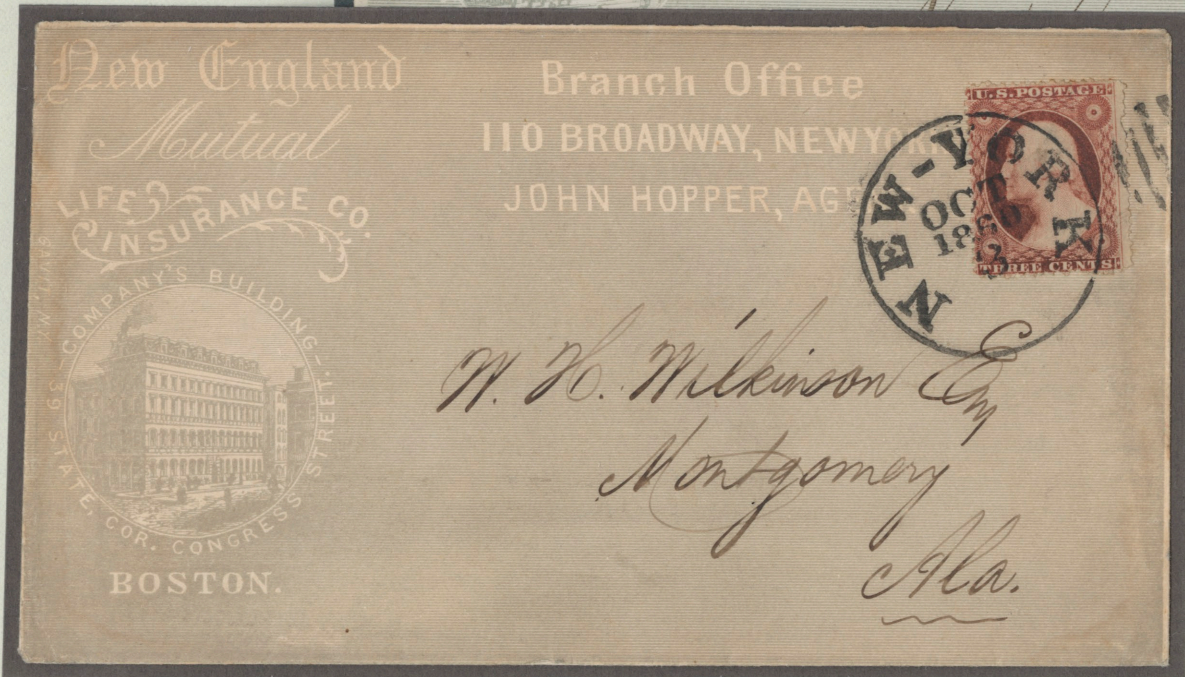 New England
Mutual
LIFE
INSURANCE CO.
COMPANY'S BUILDING
39 STATE, COR. CONGRESS STREET.
BOSTON.
Branch Office
110 BROADWAY, NEW YO
JOHN HOPPER, AG
U.S. POSTAGE
THREE CENTS
NEW-YORK
OCT
1860
W. H. Wilkinson Esq
Montgomery
Ala.